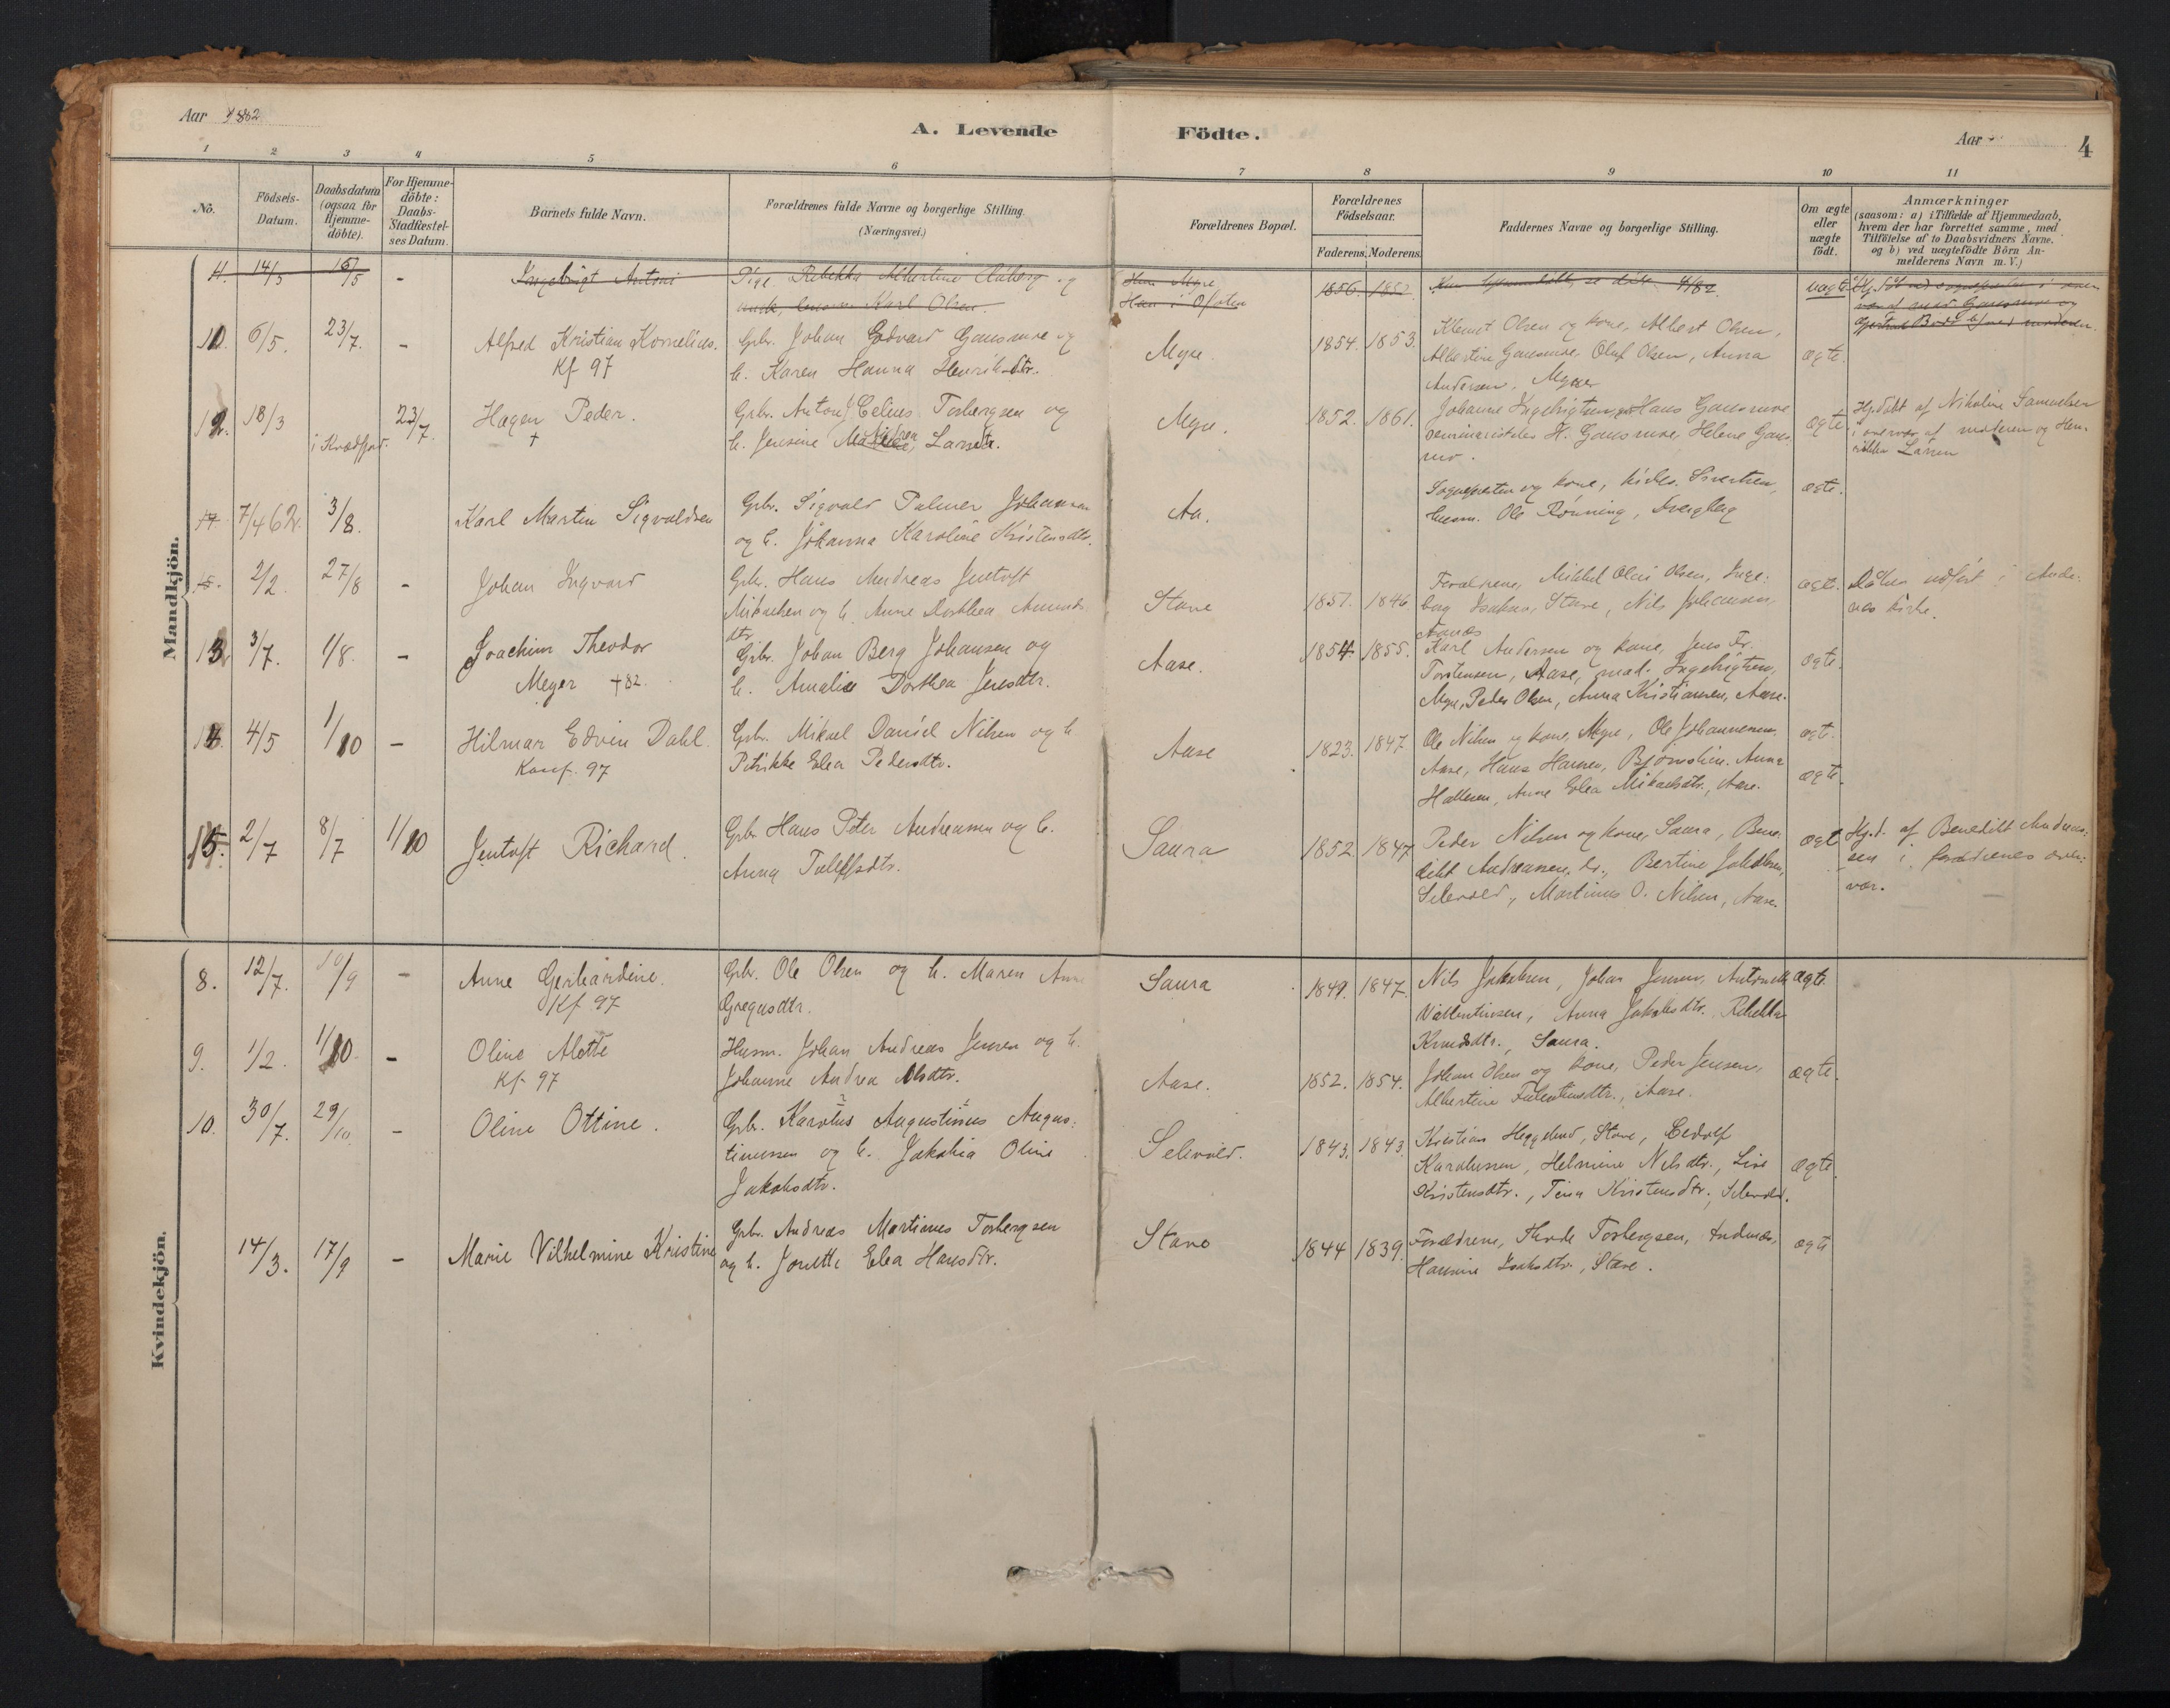 Aar 1882
A. Levende Födte.
Aar
4
1 2 3 4 5 6 7 8 9 10 11
No.
Födsels-Datum.
Daabsdatum (ogsaa for Hjemme-döbte).
For Hjemme-döbte: Daabs-Stadfæstel-ses Datum.
Barnets fulde Navn.
Forældrenes fulde Navne og borgerlige Stilling. (Næringsvei.)
Forældrenes Bopæl.
Forældrenes Födselsaar.
Faderens. Moderens.
Faddernes Navne og borgerlige Stilling.
Om ægte eller uægte födt.
Anmærkninger
(saasom: a) i Tilfælde af Hjemmedaab,
hvem der har forrettet samme, med
Tilföielse af to Daabsvidners Navne.
og b) ved uægtefödte Börn An-
melderens Navn m. V.)
Mandkjön.
11. 14/3 16/5 - Ingebrigt Antoni Pige Rebekka Albertine Aaberg og Hun Myre 1856. 1852 4/82. uægte
Karl Olsen Han i Ofoten
10. 6/5. 23/7. - Alfred Kristian Kornelius. Gbr. Johan Edvard Gausmoe og Myre 1854. 1853. Klemet Olsen og kone, Albert Olsen, ægte.
Kf 97 h. Karen Hanna Henriksdtr. Albertine Gausmoe, Oluf Olsen, Anna
Andersen, Myre
12. 18/3 i Kvædfjord. 23/7. Hagen Peder. Gbr. Anton J Celius Torbergsen og Myre. 1852. 1861. Johanne Ingebrigtsen, Hans Gausmoe ægte Hj.döbt af Nikoline Samuelsen
+ h. Jensine Larsdtr. seminarist H. Gausmoe, Helene Gaus- i overvær af moderen og Hen-
moe. rikke Larsen
17. 7/4 62. 3/8. Karl Martin Sigvaldsen Gbr. Sigvald Palmer Johansen Aa. Sogneprsten og kone, Sivertsen, ægte.
og h. Johanna Karoline Kristensdtr. Husm. Ole Rönning,
15. 2/2. 27/8 - Johan Ingvard Gbr. Hans Andreas Jentoft Stave 1851. 1846 Forældrene, Mikkel Olai Olsen, Inge- ægte. Daaben udfört i Ande-
Mikaelsen og h. Anne Dorthea Amunds- borg Isaksen, Stave, Nils Johansen, nes kirke.
dtr.
13 3/7. 1/8. - Joachim Theodor Gbr. Johan Berg Johansen og Aase. 1854. 1855. Karl Andersen og kone, Jens Fr. ægte.
Meyer +82. h. Amalie Dorthea Jensdtr. Torstensen, Aase, Ingebrigtsen,
Myre, Peder Olsen, Anna Kristiansen, Aase.
14. 4/5 1/10 - Hilmar Edvin Dahl. Gbr. Mikael Daniel Nilsen og h. Aase 1823. 1847 Ole Nilsen og kone, Myre, Ole Johannesen, ægt.
Konf. 97 Petrikke Elea Pedersdtr. Aase, Hans Hansen, Björnskin. Anna ægte.
Hallesen, Anne Elea Mikaelsdtr., Aase.
15. 2/7 8/7 1/10 Jentoft Richard. Gbr. Hans Peter Andreassen og h. Saura 1852 1847 Peder Nilsen og kone, Saura, Bene- ægt Hj.d. af Benedikt Andreas-
Anna Tollefsdtr. dikt Andreassen, do., Bertine Jakobsen, sen i forældrenes over-
Selevold, Martinus O. Nilsen, Aase. vær.
Kvindekjön.
8. 12/7. 10/9 - Anne Gerhardine. Gbr. Ole Olsen og h. Maren Anne Saura 1849. 1847. Nils Jakobsen, Johan Jensen, Antonette ægte.
Kf 97 Gregusdtr. Vallentinsen, Anna Jakobsdtr. Rebekka
Knudsdtr., Saura.
9. 1/2. 1/10. - Oline Alette Husm. Johan Andreas Jensen og h. Aase. 1852. 1854. Johan Olsen og kone, Peder Jensen, ægte.
Kf. 97 Johanne Andrea Olsdtr. Albertine Falentinsdtr., Aase.
10. 30/7. 29/10. - Oline Ottine. Gbr. Karolus Augustinus Augus- Selevold. 1843. 1843. Kristian Heggelund, Stave, Bedolf
tinussen og h. Jakobia Oline Karolussen, Helmine Nilsdtr., Live ægte
Jakobsdtr. Kristensdtr., Tina Kristensdtr., Selevold.
14/3. 17/9 - Marie Vilhelmine Kristine Gbr. Andreas Martinus Torbergsen Stave 1844 1839. Forældrene, Torbergsen, Andenæs, ægte
og h. Jonette Elea Hansdtr. Hansine Isaksdtr., Stave.